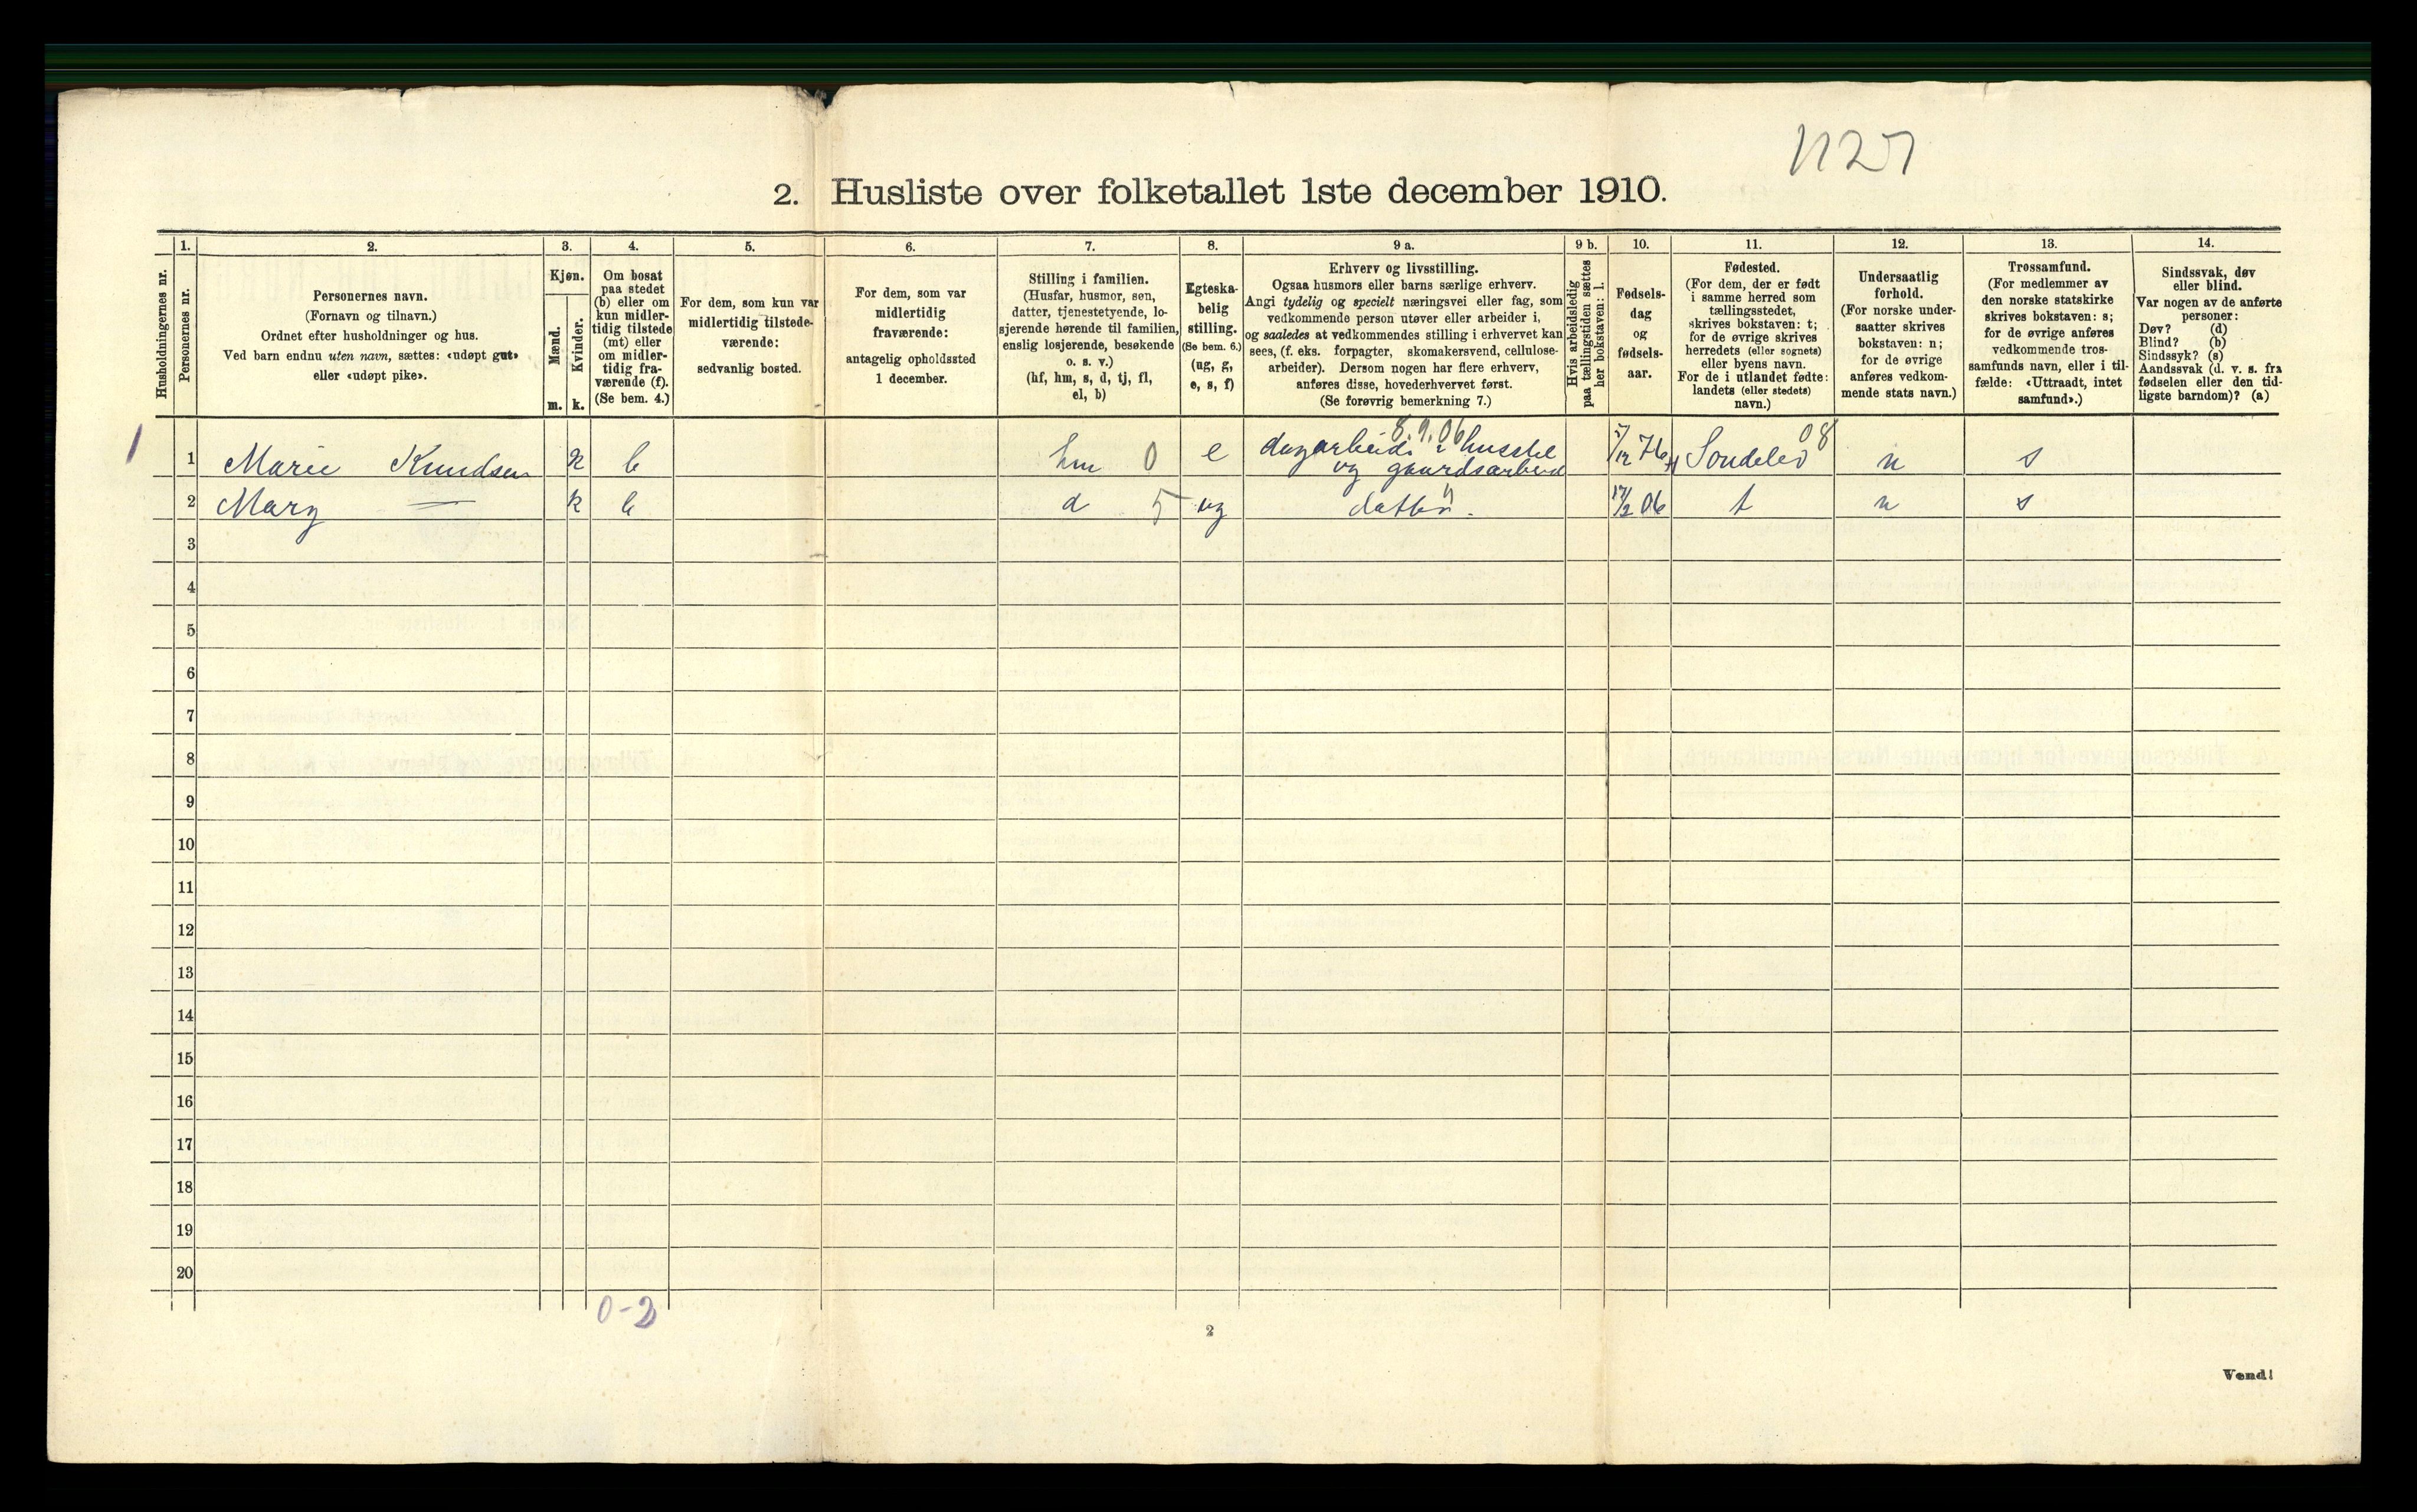 1127
2. Husliste over folketallet 1ste december 1910.
Husholdningernes nr.
1.
Personernes nr.
2.
Personernes navn.
(Fornavn og tilnavn.)
Ordnet efter husholdninger og hus.
Ved barn endnu uten navn, sættes: «udøpt gut»
eller «udøpt pike».
3.
Kjøn.
Mænd.
Kvinder.
m. k.
4.
Om bosat
paa stedet
(b) eller om
kun midler-
tidig tilstede
(mt) eller
om midler-
tidig fra-
værende (f).
(Se bem. 4.)
5.
For dem, som kun var
midlertidig tilstede-
værende:
sedvanlig bosted.
6.
For dem, som var
midlertidig
fraværende:
antagelig opholdssted
1 december.
7.
Stilling i familien.
(Husfar, husmor, søn,
datter, tjenestetyende, lo-
sjerende hørende til familien,
enslig losjerende, besøkende
o. s. v.)
(hf, hm, s, d, tj, fl,
el, b)
8.
Egteska-
belig
stilling.
(Se bem. 6.)
(ug, g,
e, s, f)
9 a.
Erhverv og livsstilling.
Ogsaa husmors eller barns særlige erhverv.
Angi tydelig og specielt næringsvei eller fag, som
vedkommende person utøver eller arbeider i,
og saaledes at vedkommendes stilling i erhvervet kan
sees, (f. eks. forpagter, skomakersvend, cellulose-
arbeider). Dersom nogen har flere erhverv,
anføres disse, hovederhvervet først.
(Se forøvrig bemerkning 7.)
9 b.
Hvis arbeidsledig
paa tællingstiden sættes
her bokstaven: l.
10.
Fødsels-
dag
og
fødsels-
aar.
11.
Fødested.
(For dem, der er født
i samme herred som
tællingsstedet,
skrives bokstaven: t;
for de øvrige skrives
herredets (eller sognets)
eller byens navn.
For de i utlandet fødte:
landets (eller stedets)
navn.)
12.
Undersaatlig
forhold.
(For norske under-
saatter skrives
bokstaven: n;
for de øvrige
anføres vedkom-
mende stats navn.)
13.
Trossamfund.
(For medlemmer av
den norske statskirke
skrives bokstaven: s;
for de øvrige anføres
vedkommende tros-
samfunds navn, eller i til-
fælde: «Uttraadt, intet
samfund».)
14.
Sindssvak, døv
eller blind.
Var nogen av de anførte
personer:
Døv? (d)
Blind? (b)
Sindssyk? (s)
Aandssvak (d. v. s. fra
fødselen eller den tid-
ligste barndom)? (a)
8.9.06 08
1 1 Marie Knudsen k b hm 0 e dagarbeid i husstel
og gaardsarbeid 7/12 76 Søndeled n s
2 Mary — k b d 5 ug datter. 17/2 06 t n s
3
4
5
6
7
8
9
10
11
12
13
14
15
16
17
18
19
20
0-2
2
Vend!